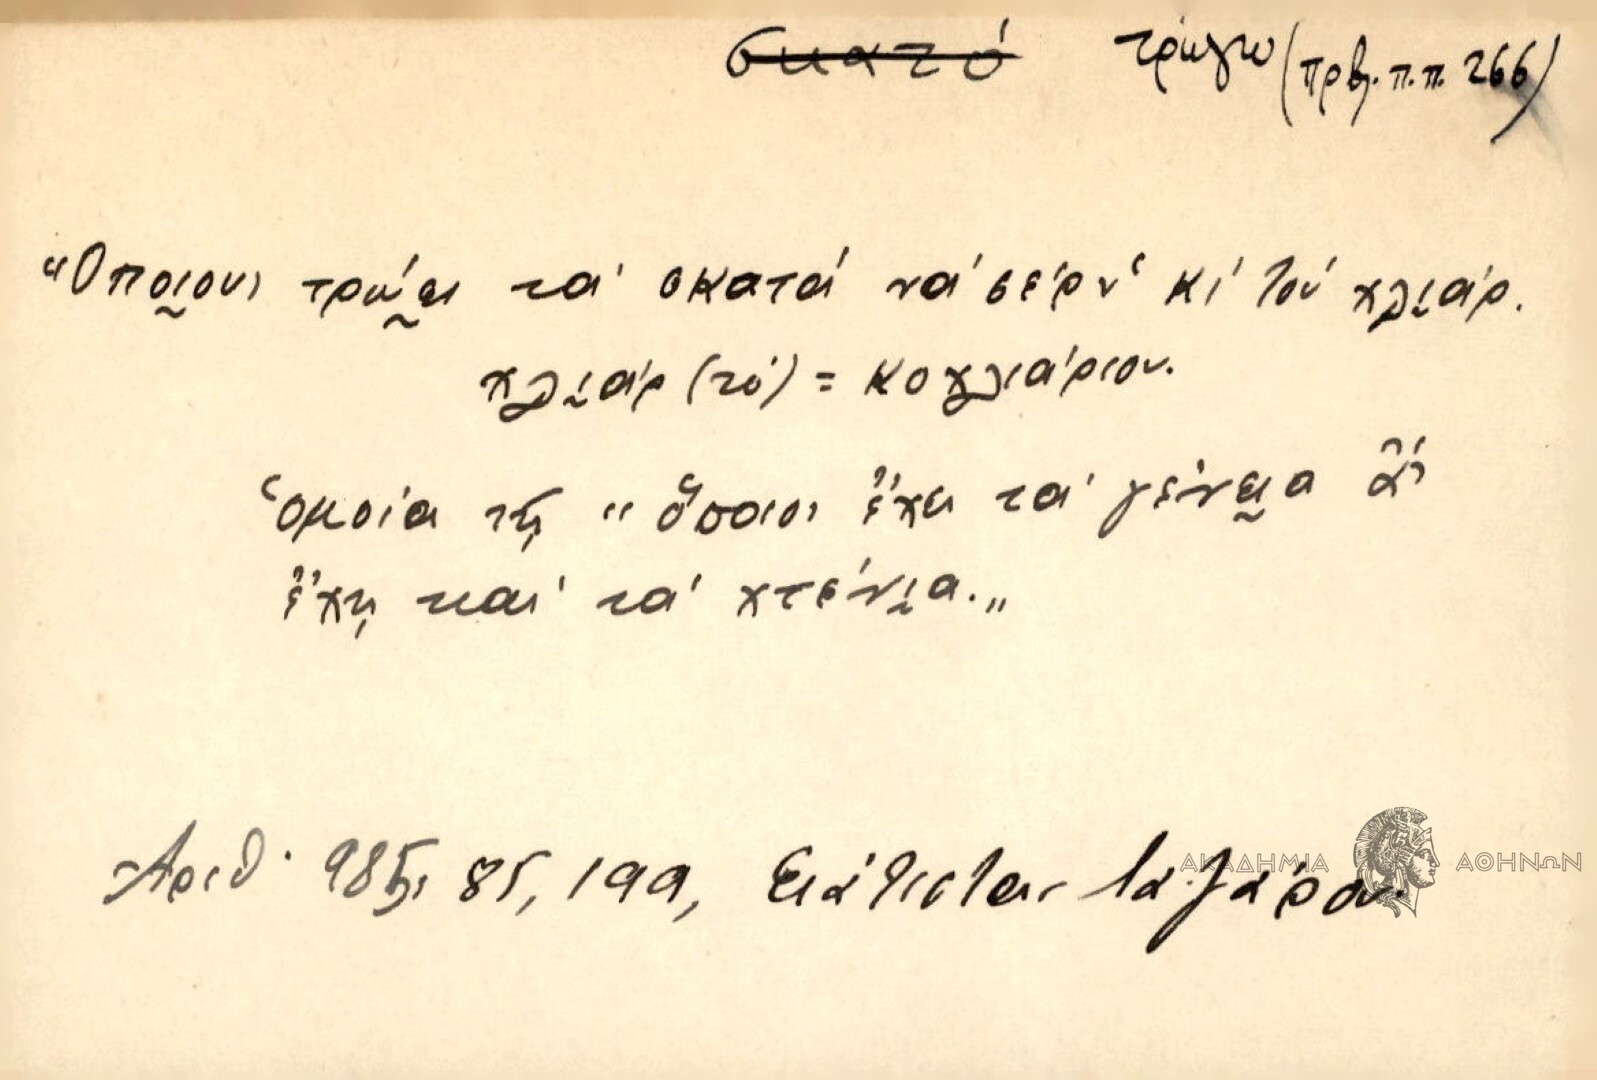 σκατό τρώγω (πρβ. π.π. 266)
"Οποιους τρώει τά σκατά νά σέρν' κί τού χλιάρ.
χλιάρ (τό) = κοχλιάριον.
Ὁμοία τῇ " ὅποιος ἔχει τά γένεια ἄς
ἔχῃ καί τά χτένια."
Ἀριθ. 985, 85, 199, Σιάτιστα, Λαζάρου
ΑΚΑΔΗΜΙΑ ΑΘΗΝΩΝ